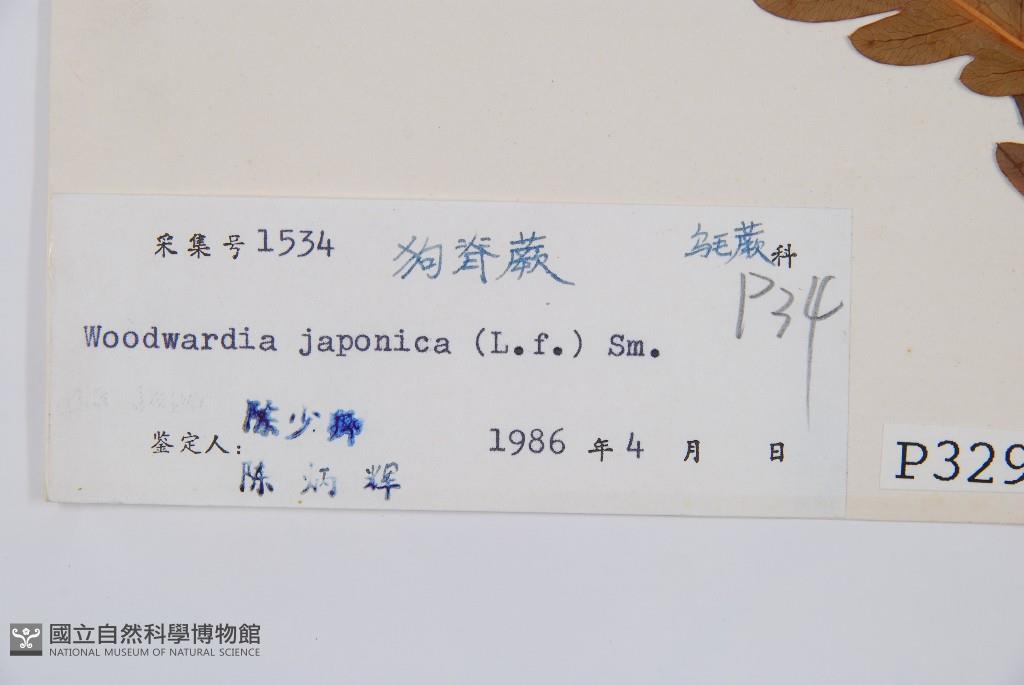 采集号 1534 狗脊蕨 乌毛蕨科
P34
Woodwardia japonica (L.f.) Sm.
鉴定人: 陈少卿
陈炳辉
1986 年 4 月 日
P329
國立自然科學博物館
NATIONAL MUSEUM OF NATURAL SCIENCE